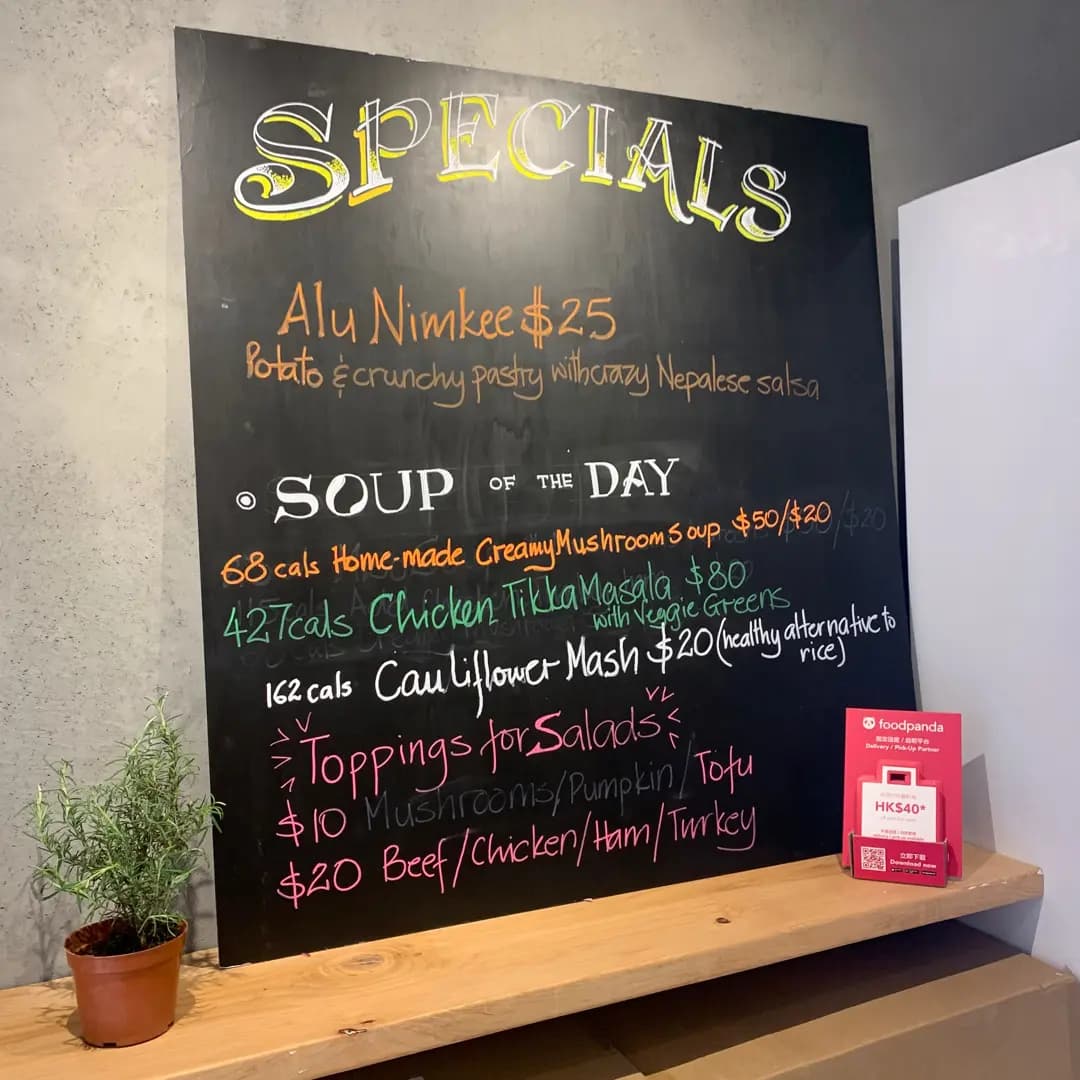 SPECIALS
Alu Nimkee $25
Potato & crunchy pastry with crazy Nepalese salsa
SOUP OF THE DAY
68 cals Home-made Creamy Mushroom Soup $50/$20
427cals Chicken Tikka Masala $80
with Veggie Greens
162 cals Cauliflower Mash $20 (healthy alternative to
rice)
Toppings for Salads
$10 Mushrooms/Pumpkin/Tofu
$20 Beef/Chicken/Ham/Turkey
foodpanda
Delivery / Pick-Up Partner
HK$40*
立即下載
Download now